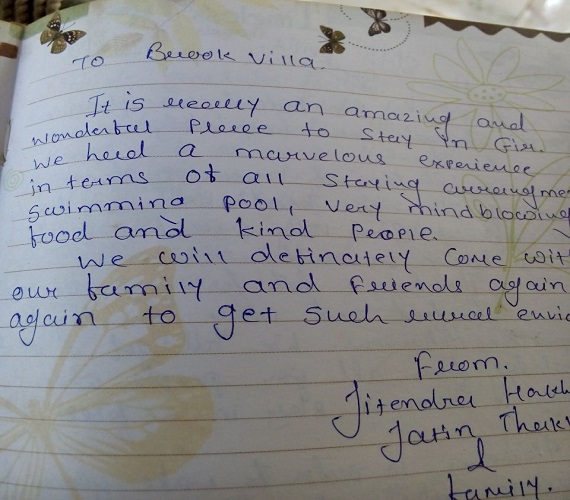 To Brook Villa.
It is really an amazing and
wonderful place to stay in Gir.
We had a marvelous experience
in terms of all staying arrangme
swimming pool, very mindblowing
food and kind people.
We will definately come wit
our family and friends again
again to get such rural envi
From.
Jitendra
Jatin Thak
&
family.